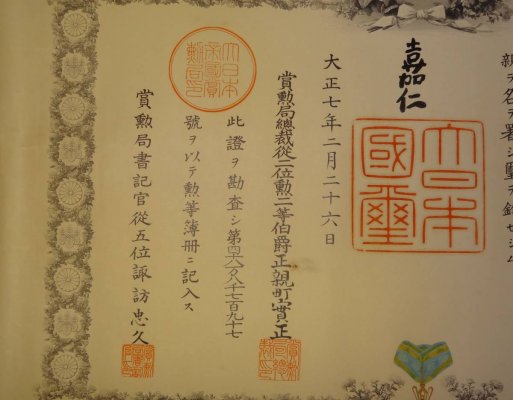 親ラ名ヲ署シ璽ヲ鈐セシム
嘉仁
大日本
國璽
大正七年二月二十六日
賞勲局總裁從二位勲二等伯爵正親町實正
大日本
帝國賞
勲局印
此證ヲ勘査シ第四六八千七百九十七
號ヲ以テ勲等簿冊ニ記入ス
賞勲局書記官從五位諏訪忠久